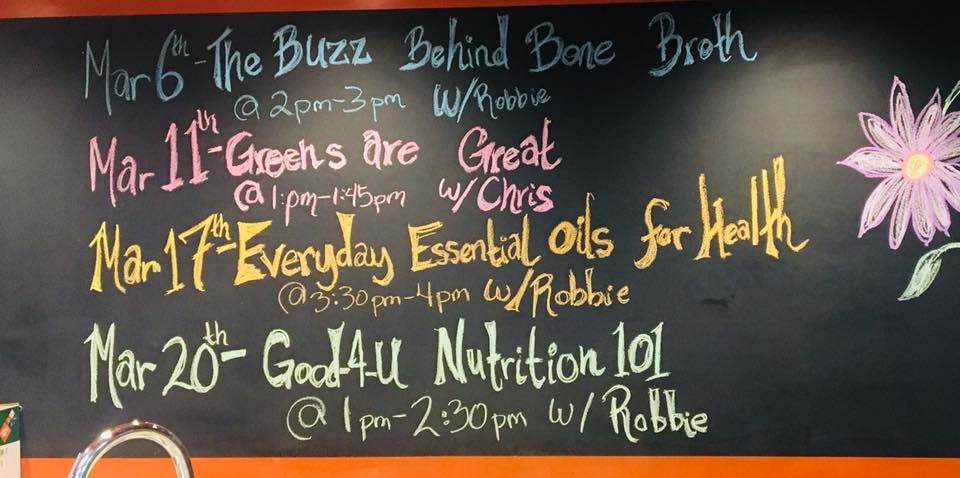 Mar 6th - The Buzz Behind Bone Broth
@ 2pm-3pm w/Robbie
Mar 11th - Greens are Great
@ 1:pm-1:45pm w/Chris
Mar 17th - Everyday Essential Oils for Health
@ 3:30pm-4pm w/Robbie
Mar 20th - Good-4-U Nutrition 101
@ 1pm-2:30pm w/ Robbie